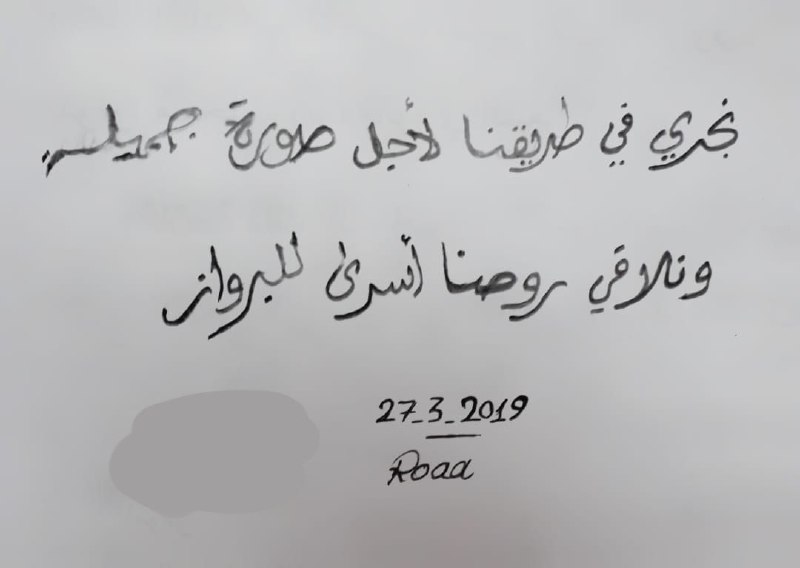 نجري في طريقنا لأجل صورة جميله
ونلاقي روحنا أسرى للبرواز
27_3_2019
Roaa